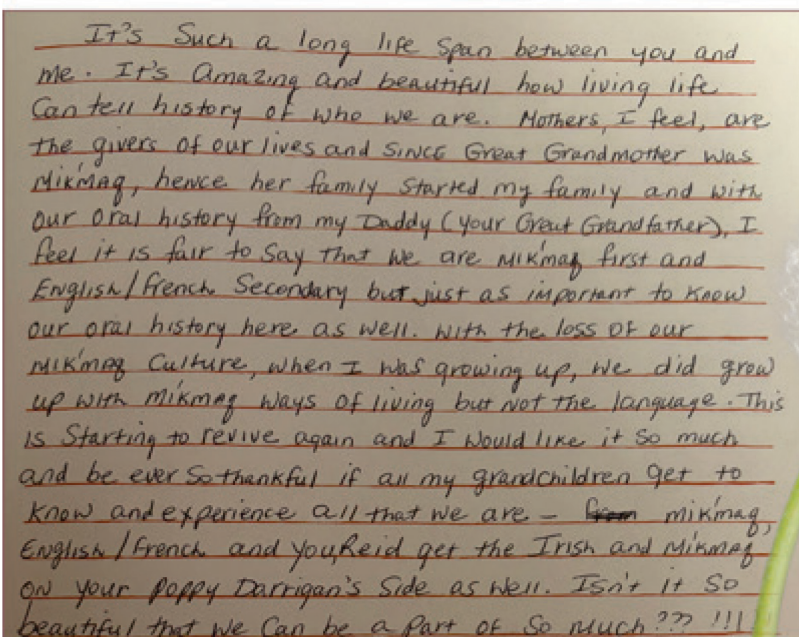 It's Such a long life span between you and
me. It's Amazing and beautiful how living life
Can tell history of who we are. Mothers, I feel, are
the givers of our lives and since Great Grandmother was
Mi'kmaq, hence her family started my family and with
our oral history from my Daddy (your Great Grandfather), I
feel it is fair to say that we are mi'kmaq first and
English/French Secondary but just as important to know
our oral history here as well. With the loss of our
Mi'kmaq Culture, when I was growing up, we did grow
up with mi'kmaq ways of living but not the language. This
is Starting to revive again and I would like it so much
and be ever so thankful if all my grandchildren get to
know and experience all that we are - from mi'kmaq,
English/French and you, Reid get the Irish and Mi'kmaq
on your Poppy Darrigan's Side as well. Isn't it so
beautiful that we can be a part of so much??? !!!!